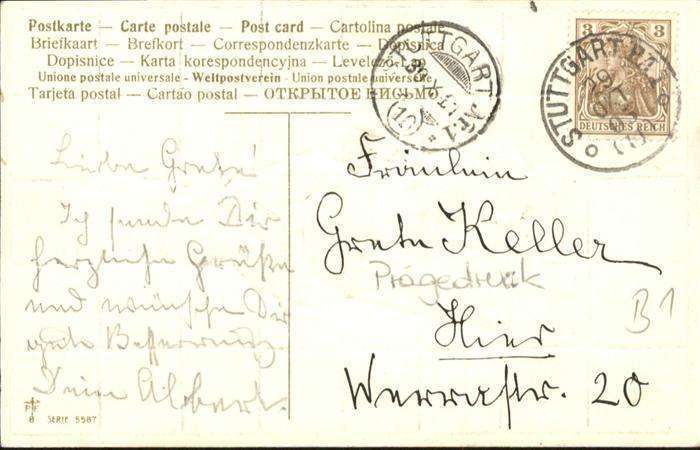 Postkarte — Carte postale — Post card — Cartolina postale
Briefkaart — Brefkort — Correspondenzkarte — Dopisnica
Dopisnice — Karta korespondencyjna — Levelező-Lap
Unione postale universale - Weltpostverein - Union postale universelle
Tarjeta postal — Cartao postal — ОТКРЫТОЕ ПИСЬМО
STUTTGART Nr.1
3 3
DEUTSCHES REICH
STUTTGART
Liebe Grete!
Ich sende Dir
herzliche Grüße
und wünsche Dir
gute Besserung
Dein Albert.
Fräulein
Grete Keller
Prägedruck
B1
Hier
Werrastr. 20
PFB
SERIE 5587